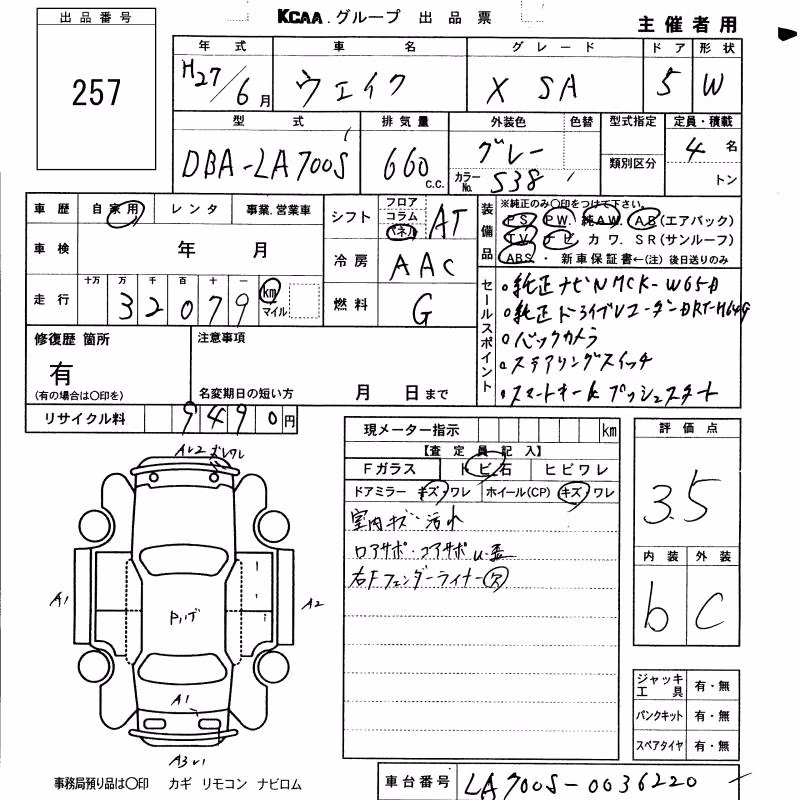 出品番号
257
KCAA.グループ 出品票
主催者用
年式 車名 グレード ドア 形状
H27/6月 ウェイク X SA 5 W
型式 排気量 外装色 色替 型式指定 定員・積載
DBA-LA700S 660 c.c. グレー 類別区分 4名
カラーNo. S38 トン
車歴 自家用 レンタ 事業.営業車
車検 年 月
走行 十万 万 千 百 十 一
32079 km マイル
シフト フロア コラム パネル AT
冷房 AAC
燃料 G
装備品 ※純正のみ〇印をつけて下さい。
PS PW. 純AW. AB(エアバック)
TV ナビ カワ. SR(サンルーフ)
ABS. ・ 新車保証書←(注)後日送りのみ
セールスポイント
・純正ナビNMCK-W65D
・純正ドライブレコーダーDRT-H64G
・バックカメラ
・ステアリングスイッチ
・スマートキー プッシュスタート
修復歴 箇所
有
(有の場合は〇印を)
注意事項
名変期日の短い方 月 日まで
リサイクル料 9490円
現メーター指示 km
【査定員記入】
Fガラス トビ石 ヒビワレ
ドアミラー キズ・ワレ ホイール(CP) キズ・ワレ
室内キズ・汚れ
ロアサポ・コアサポ
右Fフェンダーライナー欠
評価点
3.5
内装 外装
b C
ジャッキ工具 有・無
パンクキット 有・無
スペアタイヤ 有・無
A1
A2
A1
事務局預り品は〇印 カギ リモコン ナビロム
車台番号 LA700S-0036220